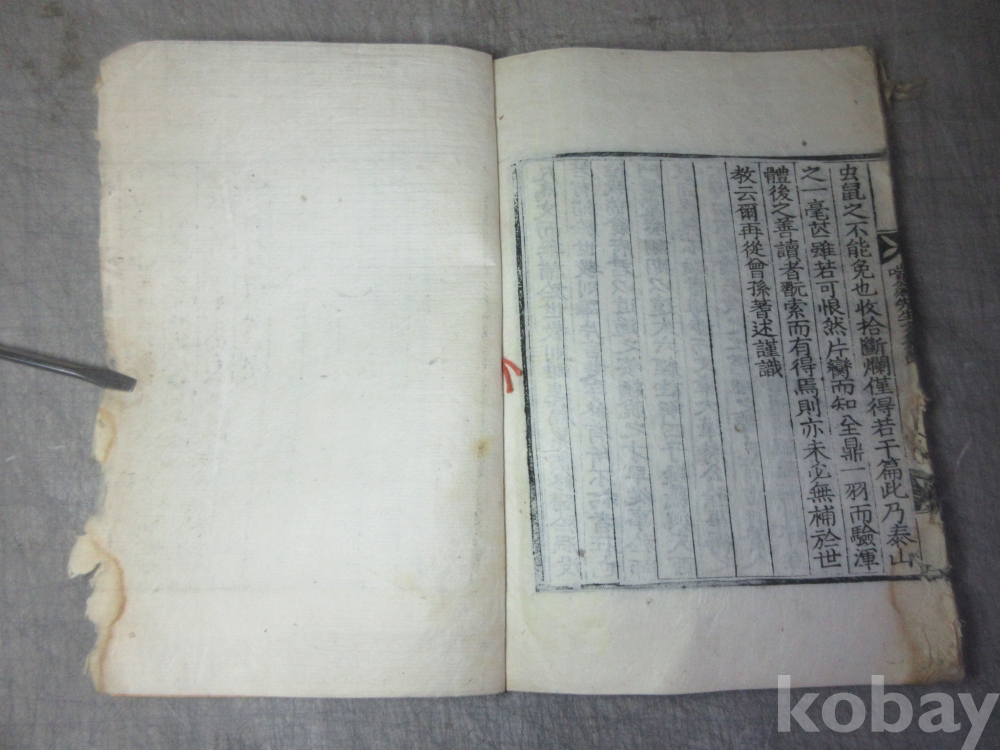 虫鼠之不能免也收拾斷爛僅得若干篇此乃泰山
之一毫芒雖若可恨然片臠而知全鼎一羽而驗渾
體後之善讀者翫索而有得焉則亦未必無補於世
教云爾再從曾孫著述謹識
kobay